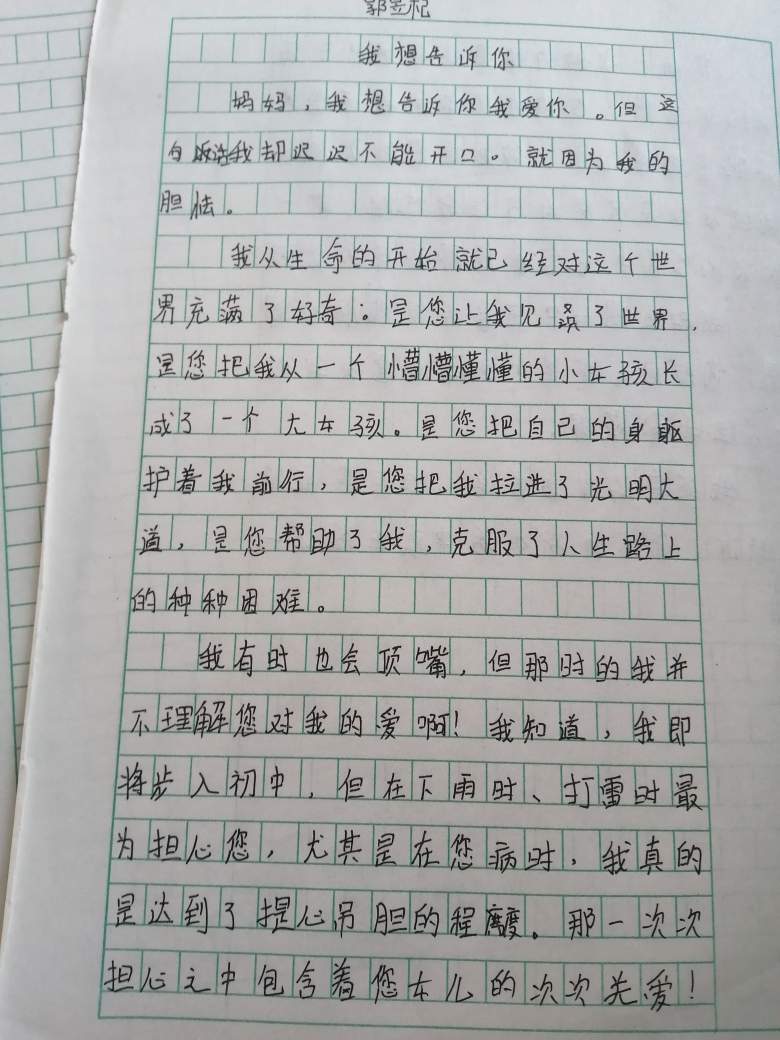 我想告诉你
妈妈，我想告诉你我爱你。但这
句话我却迟迟不能开口。就因为我的
胆怯。
我从生命的开始就已经对这个世
界充满了好奇：是您让我见了世界，
是您把我从一个懵懵懂懂的小女孩长
成了一个大女孩。是您把自己的身躯
护着我前行，是您把我拉进了光明大
道，是您帮助了我，克服了人生路上
的种种困难。
我有时也会顶嘴，但那时的我并
不理解您对我的爱啊！我知道，我即
将步入初中，但在下雨时、打雷时最
为担心您，尤其是在您病时，我真的
是达到了提心吊胆的程度。那一次次
担心之中包含着您女儿的次次关爱！